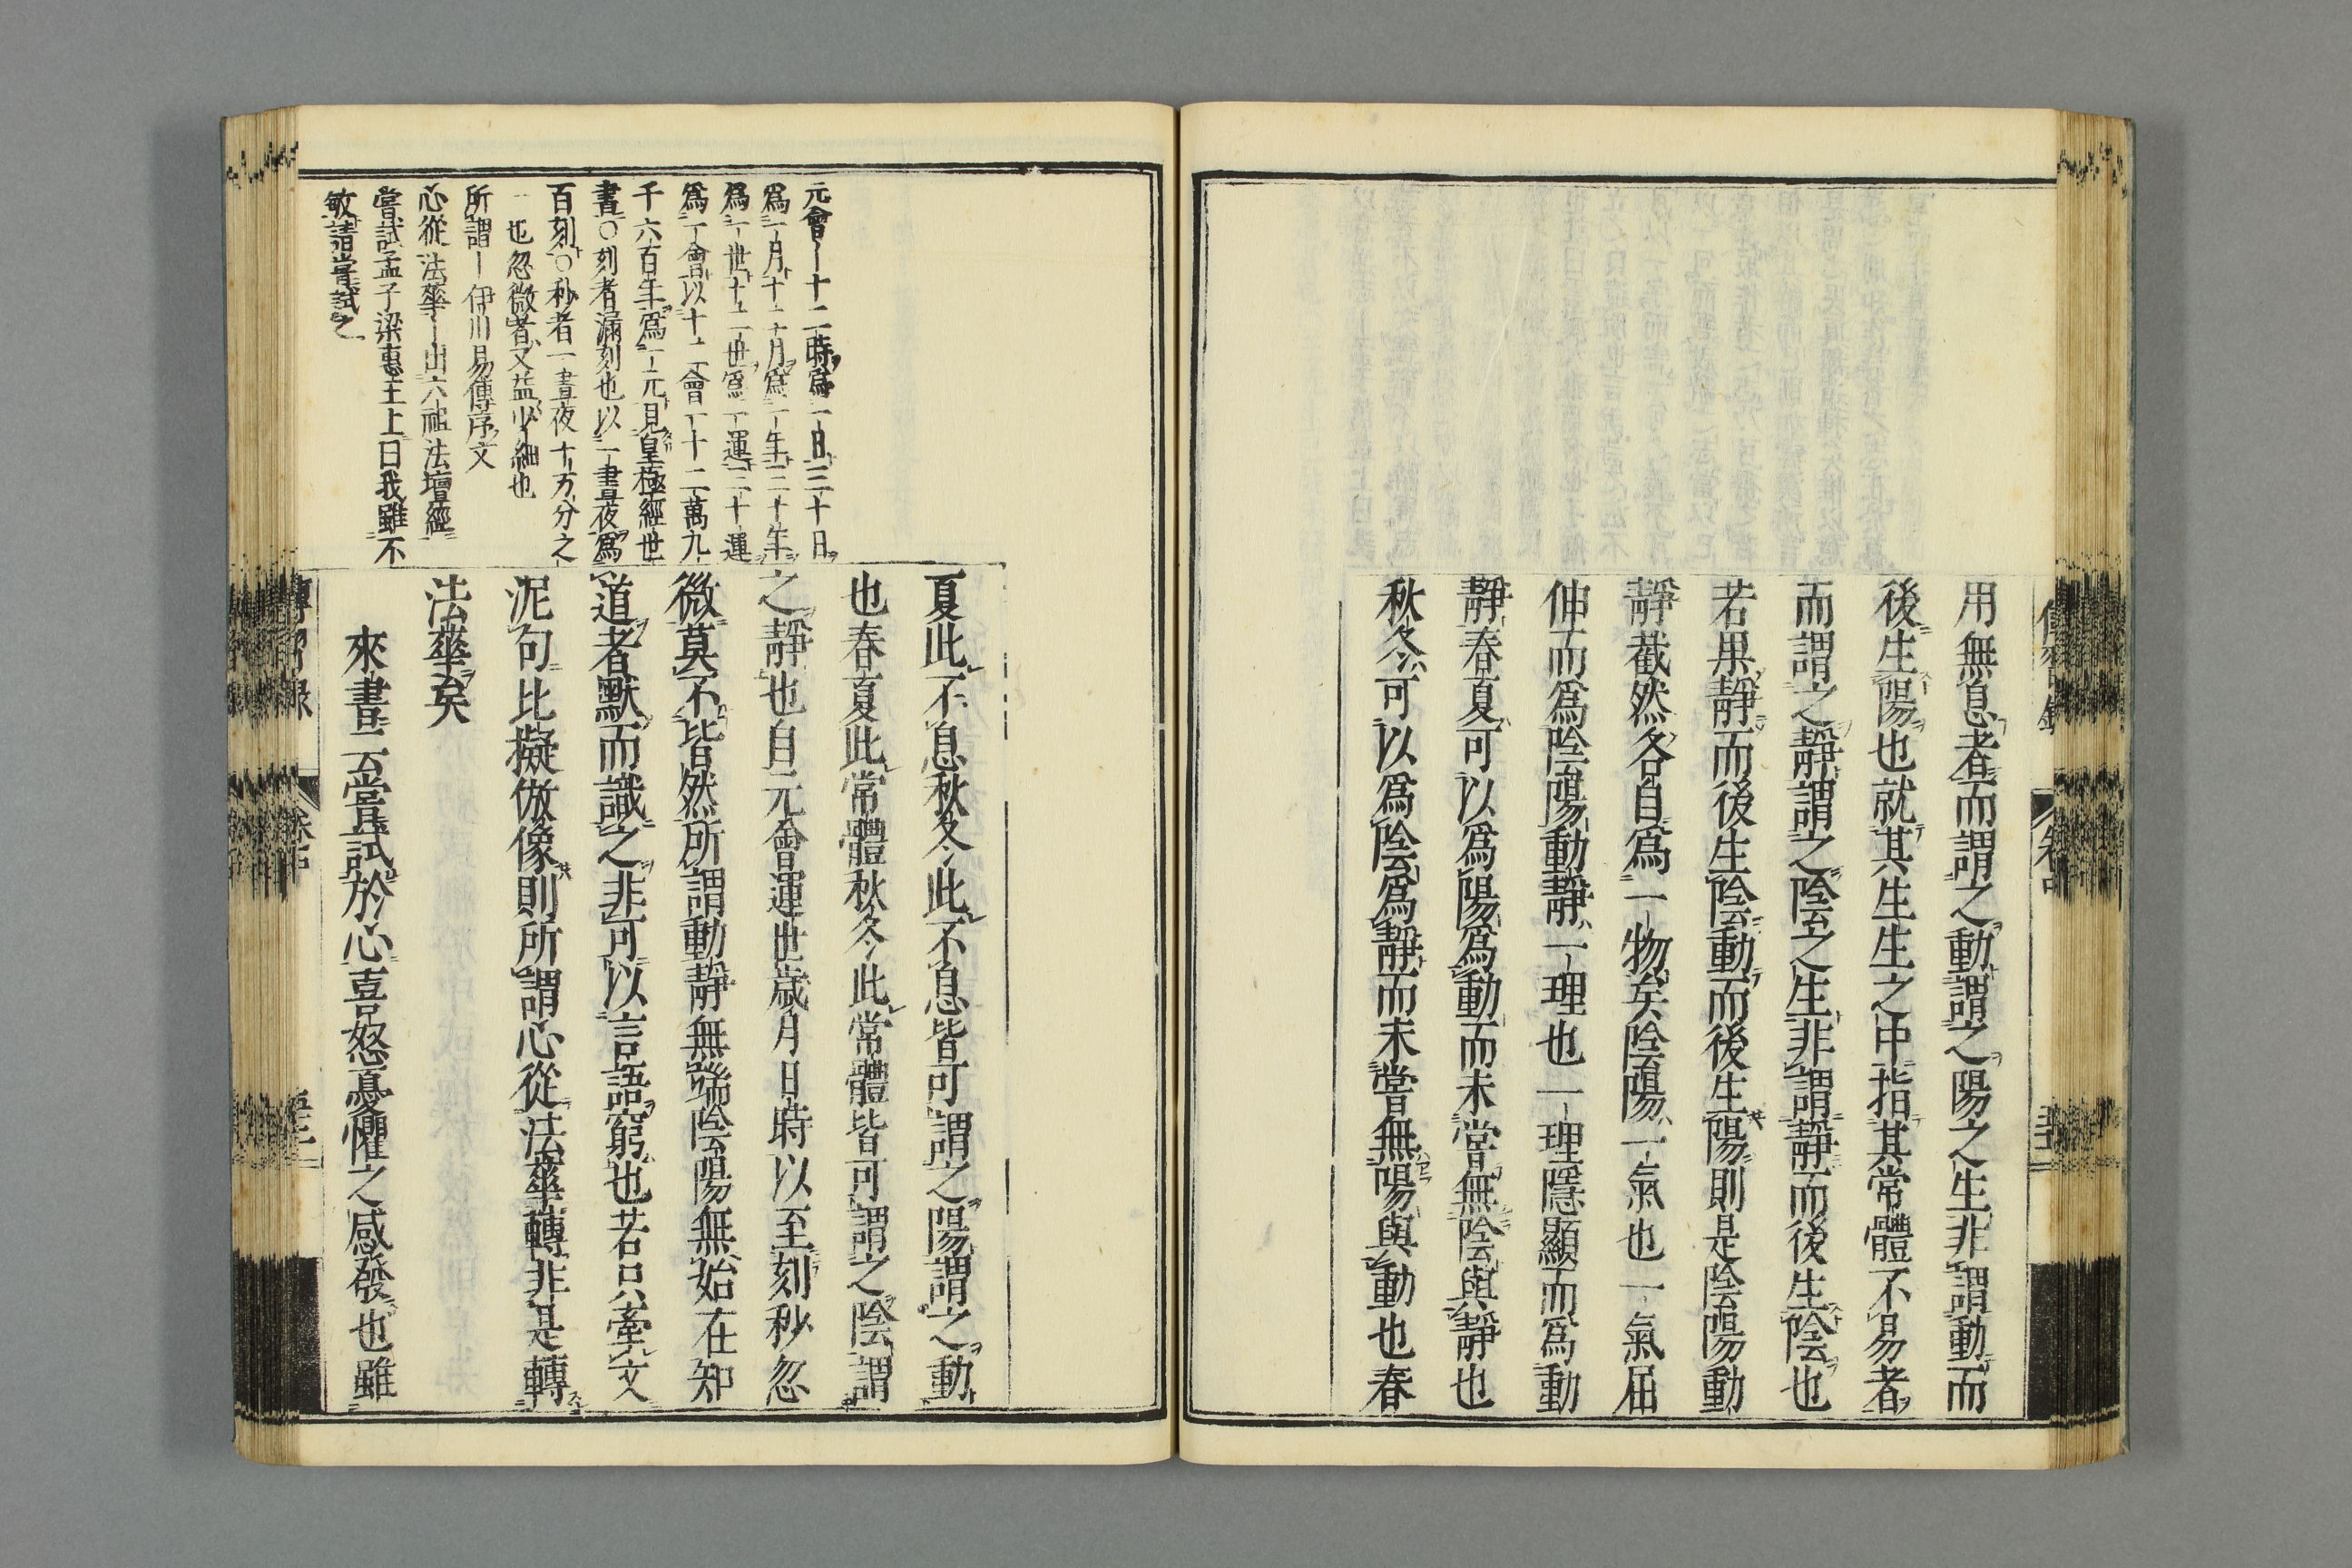 用無息者而謂之動謂之陽之生非謂動而
後生陽也就其生生之中指其常體不易者
而謂之靜謂之陰之生非謂靜而後生陰也
若果靜而後生陰動而後生陽則是陰陽動
靜截然各自爲一物矣陰陽一氣也一氣屈
伸而爲陰陽動靜一理也一理隱顯而爲動
靜春夏可以爲陽爲動而未嘗無陰與靜也
秋冬可以爲陰爲靜而未嘗無陽與動也春
元會〡十二時爲一日三十日
爲一月十二月爲一年三十年
爲一世十二世爲一運三十運
爲一會以十二會一十二萬九
千六百年爲一元見皇極經世
書○刻者漏刻也以一晝夜爲
百刻○秒者一晝夜十万分之
一也忽微者又益少細也
所謂〡伊川易傳序文
心從法華〡出六祖法壇經
嘗試孟子梁惠王上曰我雖不
敏請嘗試之
夏此不息秋冬此不息皆可謂之陽謂之動
也春夏此常體秋冬此常體皆可謂之陰謂
之靜也自元會運世歲月日時以至刻秒忽
微莫不皆然所謂動靜無端陰陽無始在知
道者默而識之非可以言語窮也若只牽文
泥句比擬倣像則所謂心從法華轉非是轉
法華矣
來書云嘗試於心喜怒憂懼之感發也雖
傳習錄 卷中